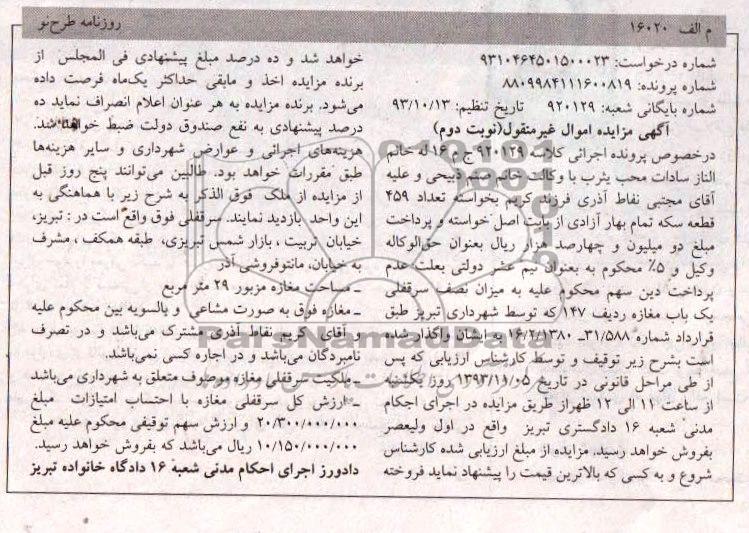 م الف ۱۶۰۲۰
روزنامه طرح‌نو
شماره درخواست: ۹۳۱۰۴۶۴۵۰۱۵۰۰۰۲۳
شماره پرونده: ۸۸۰۹۹۸۴۱۱۱۶۰۰۸۱۹
شماره بایگانی شعبه: ۹۲۰۱۲۹ تاریخ تنظیم: ۹۳/۱۰/۱۳
آگهی مزایده اموال غیرمنقول(نوبت دوم)
درخصوص پرونده اجرائی کلاسه ۹۲۰۱۲۹ ج م ۱۶ له خانم
الناز سادات محب یثرب با وکالت خانم صنم ذبیحی و علیه
آقای مجتبی نفاط آذری فرزند کریم بخواسته تعداد ۴۵۹
قطعه سکه تمام بهار آزادی از بابت اصل خواسته و پرداخت
مبلغ دو میلیون و چهارصد هزار ریال بعنوان حق‌الوکاله
وکیل و ۵٪ محکوم به بعنوان نیم عشر دولتی بعلت عدم
پرداخت دین سهم محکوم علیه به میزان نصف سرقفلی
یک باب مغازه ردیف ۱۴۷ که توسط شهرداری تبریز طبق
قرارداد شماره ۳۱/۵۸۸ـ ۱۶/۲/۱۳۸۰ به ایشان واگذار شده
است بشرح زیر توقیف و توسط کارشناس ارزیابی که پس
از طی مراحل قانونی در تاریخ ۱۳۹۳/۱۱/۰۵ روز یکشنبه
از ساعت ۱۱ الی ۱۲ ظهر از طریق مزایده در اجرای احکام
مدنی شعبه ۱۶ دادگستری تبریز واقع در اول ولیعصر
بفروش خواهد رسید. مزایده از مبلغ ارزیابی شده کارشناس
شروع و به کسی که بالاترین قیمت را پیشنهاد نماید فروخته
خواهد شد و ده درصد مبلغ پیشنهادی فی المجلس از
برنده مزایده اخذ و مابقی حداکثر یک‌ماه فرصت داده
می‌شود. برنده مزایده به هر عنوان اعلام انصراف نماید ده
درصد پیشنهادی به نفع صندوق دولت ضبط خواهد شد.
هزینه‌های اجرائی و عوارض شهرداری و سایر هزینه‌ها
طبق مقررات خواهد بود. طالبین می‌توانند پنج روز قبل
از مزایده از ملک فوق الذکر به شرح زیر با هماهنگی به
این واحد بازدید نمایند. سرقفلی فوق واقع است در : تبریز،
خیابان تربیت ، بازار شمس تبریزی، طبقه همکف ، مشرف
به خیابان، مانتوفروشی آذر
ـ مساحت مغازه مزبور ۲۹ متر مربع
ـ مغازه فوق به صورت مشاعی و بالسویه بین محکوم علیه
و آقای کریم نفاط آذری مشترک می‌باشد و در تصرف
نامبردگان می‌باشد و در اجاره کسی نمی‌باشد.
ـ ملکیت سرقفلی مغازه موصوف متعلق به شهرداری می‌باشد
ـ ارزش کل سرقفلی مغازه با احتساب امتیازات مبلغ
۲۰/۳۰۰/۰۰۰/۰۰۰ و ارزش سهم توقیفی محکوم علیه مبلغ
۱۰/۱۵۰/۰۰۰/۰۰۰ ریال می‌باشد که بفروش خواهد رسید.
دادورز اجرای احکام مدنی شعبه ۱۶ دادگاه خانواده تبریز
ParsNamadData